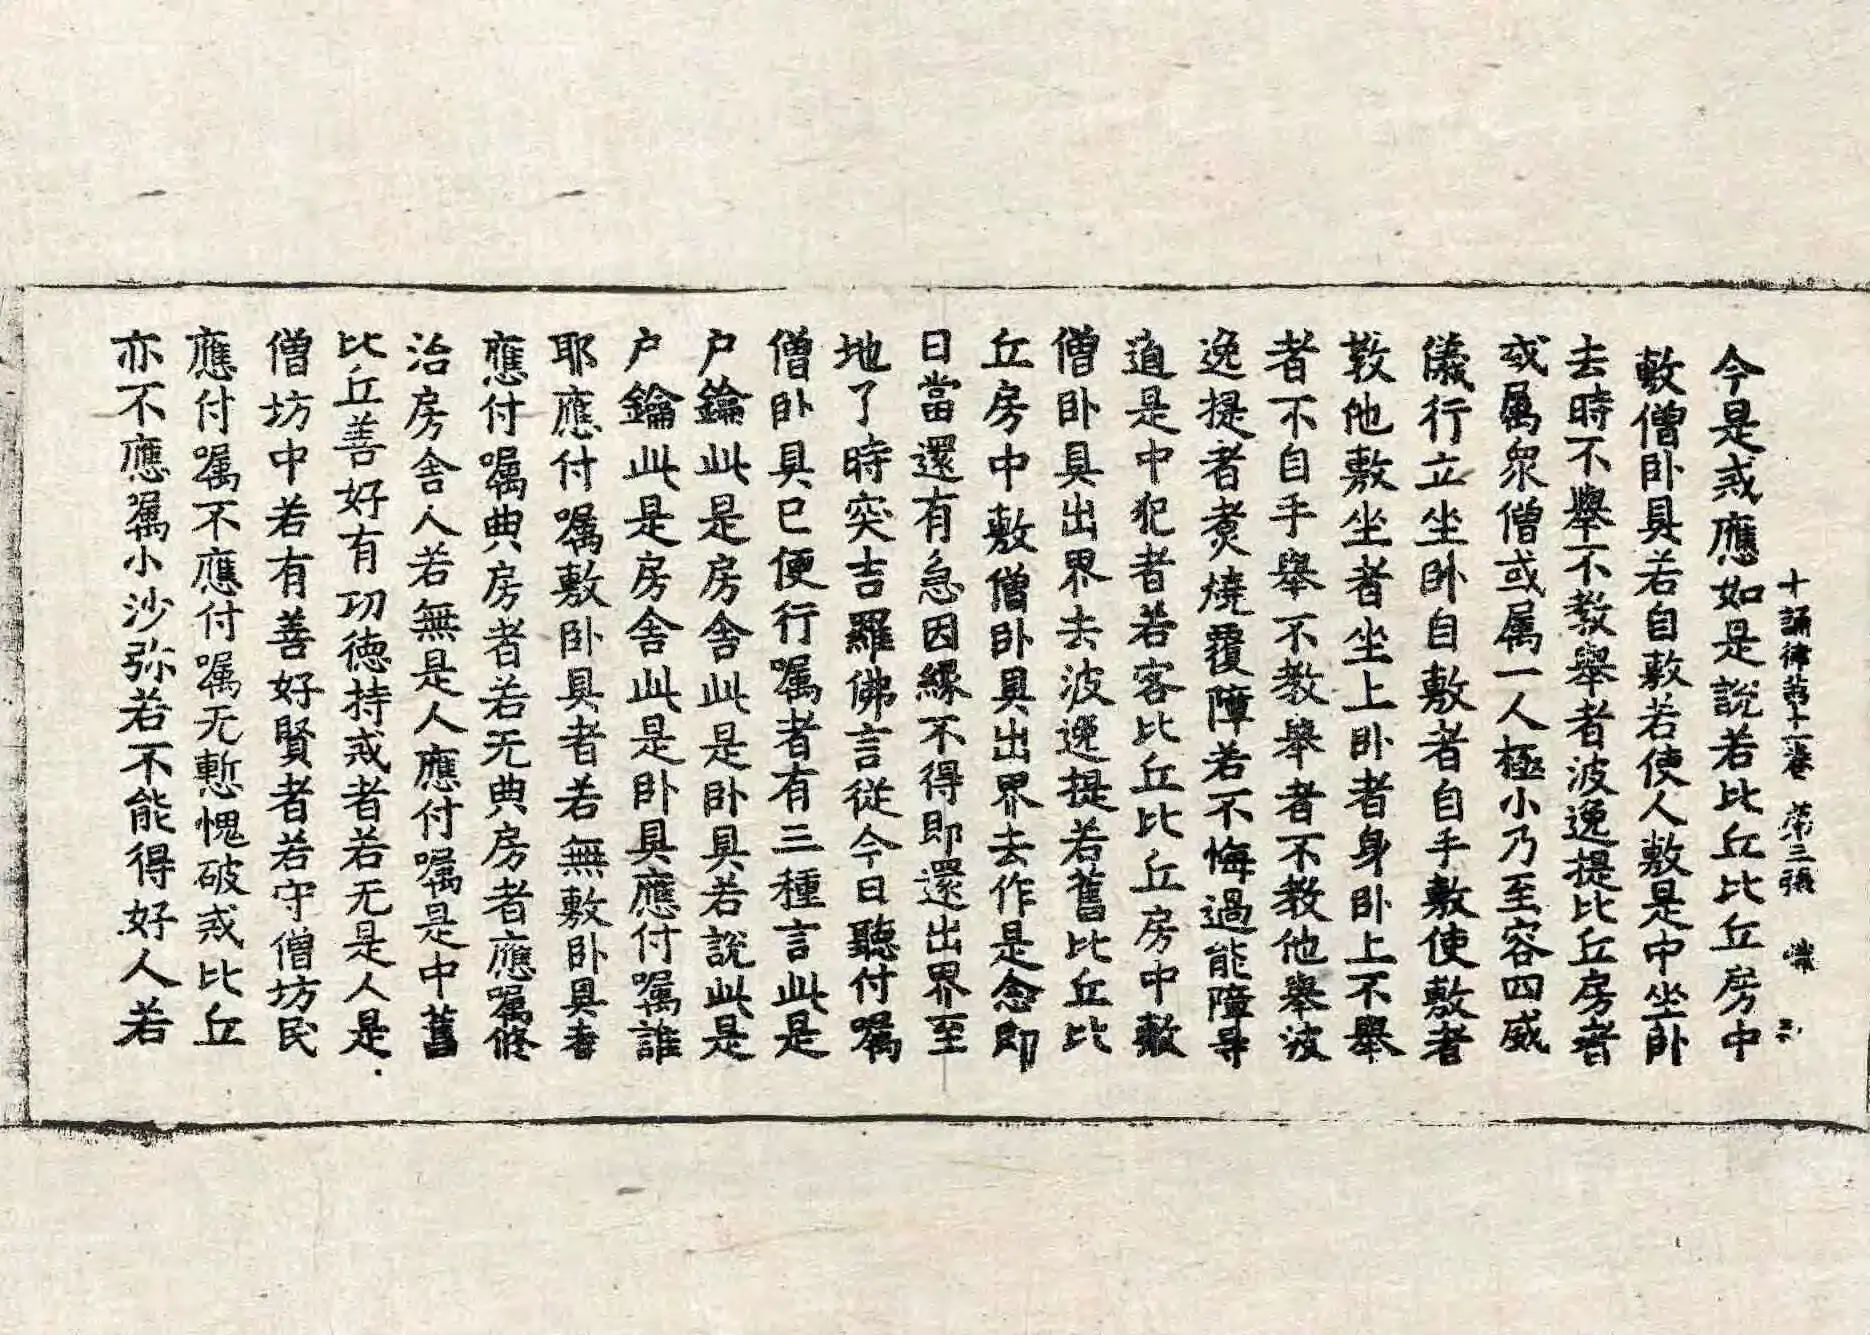 十誦律第十一卷 第三張
今是戒應如是說若比丘比丘房中
敷僧卧具若自敷若使人敷是中坐卧
去時不舉不教舉者波逸提比丘房者
或属衆僧或属一人極小乃至容四威
儀行立坐卧自敷者自手敷使敷者
教他敷坐者坐上卧者身卧上不舉
者不自手舉不教舉者不教他舉波
逸提者煑燒覆障若不悔過能障㝵
道是中犯者若客比丘比丘房中敷
僧卧具出界去波逸提若舊比丘比
丘房中敷僧卧具出界去作是念即
日當還有急因緣不得即還出界至
地了時突吉羅佛言從今日聽付嘱
僧卧具已便行嘱者有三種言此是
户鑰此是房舍此是卧具若說此是
户鑰此是房舍此是卧具應付嘱誰
耶應付嘱敷卧具者若無敷卧具者
應付嘱典房者若无典房者應嘱修
治房舍人若無是人應付嘱是中舊
比丘善好有功徳持戒者若无是人是
僧坊中若有善好賢者若守僧坊民
應付嘱不應付嘱无慙愧破戒比丘
亦不應嘱小沙弥若不能得好人若